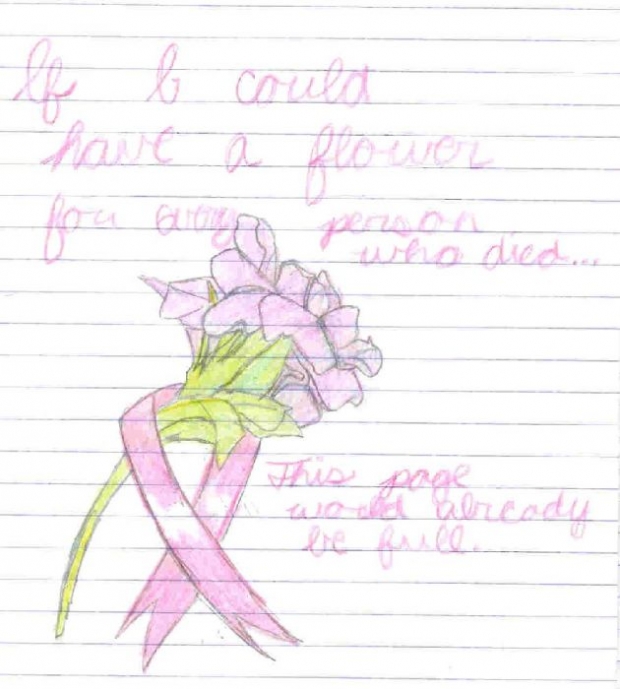 If I could
have a flower
for every person
who died...
This page
would already
be full.